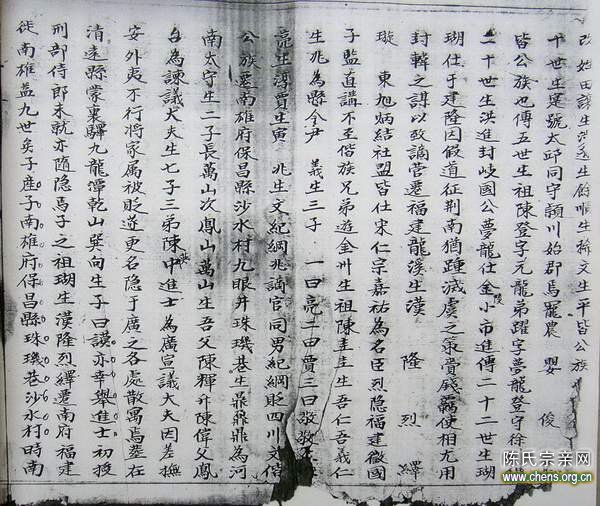 改始田謨生洪遠生餘順生裕文生平皆公族
十世生寔號太邱同守潁川始郡焉罷農 嬰 俊
皆公族也傳五世生祖陳登字元龍弟躍字夢龍登守徐
二十世生洪進封岐國公夢龍仕金小帝進傳二十二世生瑚
瑚仕于建隆因假道征荆南猶踵滅虞之策賣錢使相尤用
封轄之謀以致謫官遷福建龍溪生漢 隆 烈 繹
璇 東旭炳結社盟皆仕宋仁宗嘉祐為名臣烈隐福建微國
子監直講不至偕族兄弟遊金州生祖陳圭圭生吾仁吾義仁
生兆為縣令尹 義生三子 一曰亮二曰賈三曰敬敬
亮生淳賈生寅 兆生文紀綱兆謫官同男紀綱貶四川文偕
公族遷南雄府保昌縣沙水村九眼井珠璣巷生鼎鼎鼎為河
南太守生二子長萬山次鳳山萬山生吾父陳輝升陳偉父鳳
台為諫議大夫生七子三弟陳中進士為廣宣議大夫因差撫
安外夷不行將家屬被貶遂更名隐于廣之各處散寓焉塟在
清遠縣蒙裏驛九龍潭乾山巽向生子曰謨亦幸舉進士初授
刑部侍郎未就亦随隐焉子之祖瑚生漢隆烈繹遷南府福建
徙南雄盖九世矣子産子南雄府保昌縣珠璣巷沙水村時南
陈氏宗亲网
www.chens.org.cn